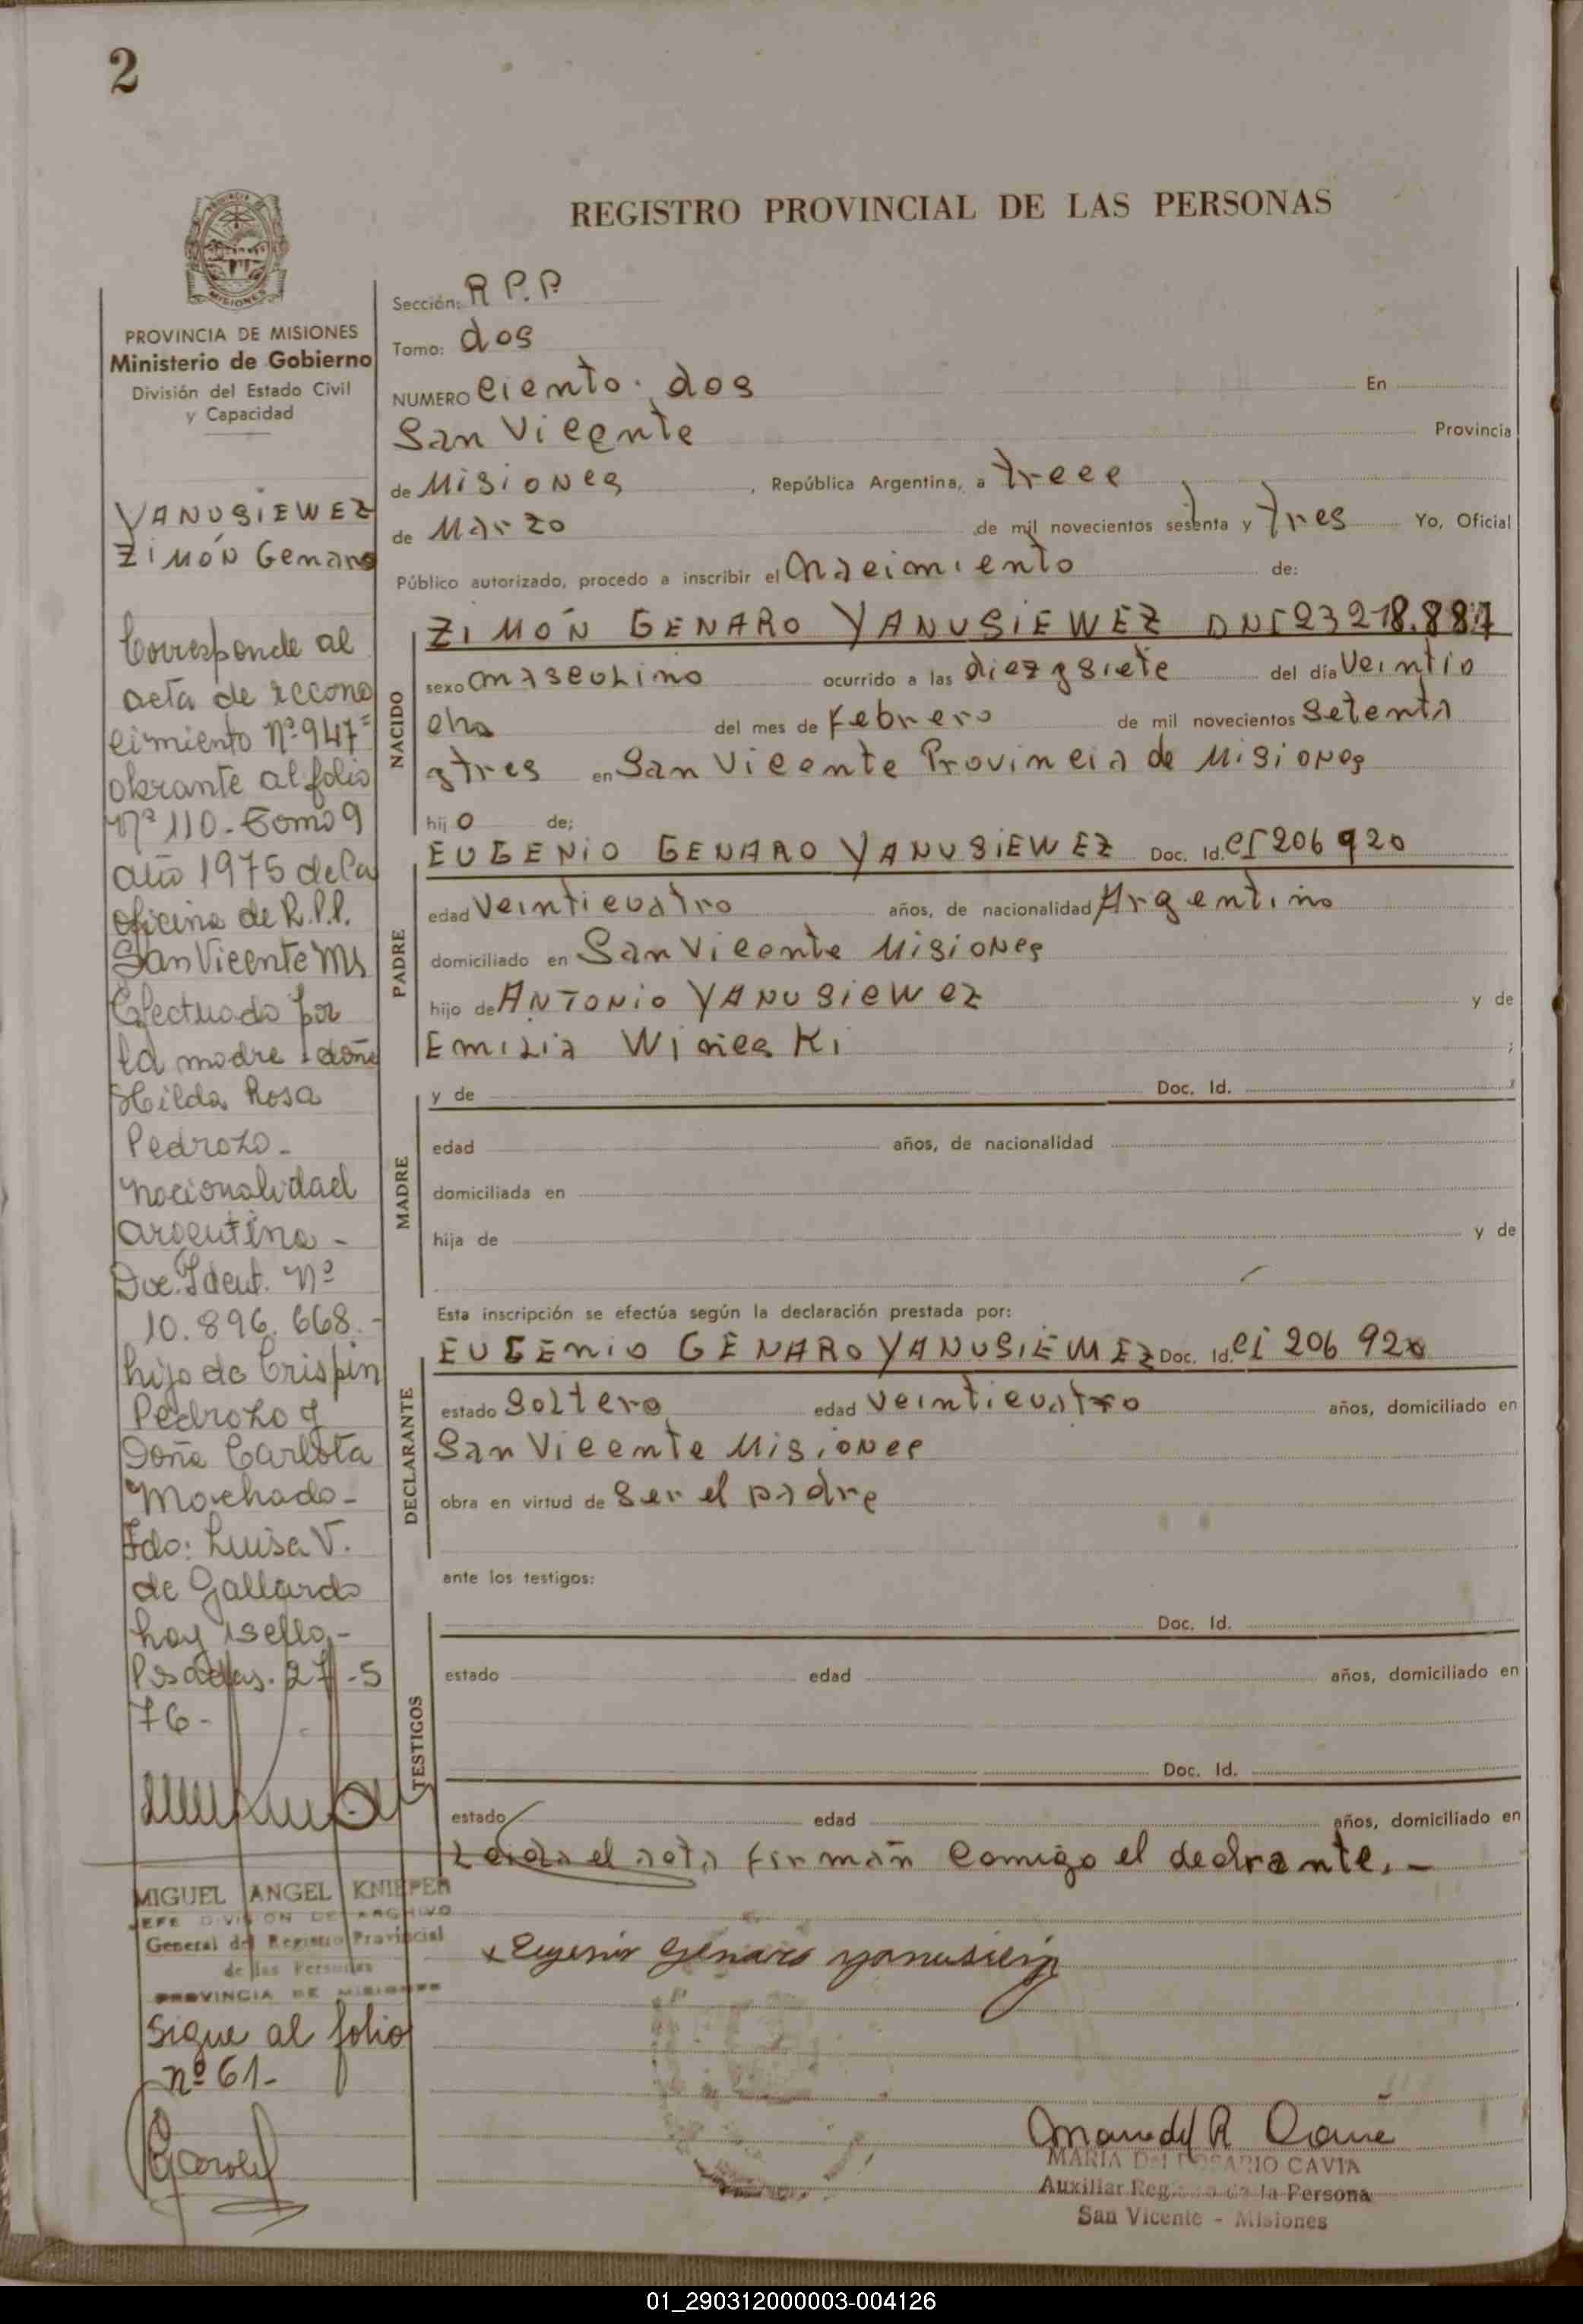 2
REGISTRO PROVINCIAL DE LAS PERSONAS
PROVINCIA DE MISIONES
Ministerio de Gobierno
División del Estado Civil
y Capacidad
YANUSIEWEZ
ZIMÓN Genaro
Corresponde al
acta de recono
cimiento Nº 947=
obrante al folio
Nº 110 - Tomo 9
año 1975 de la
oficina de R.P.P.
San Vicente Ms
Efectuado por
la madre doña
Hilda Rosa
Pedrozo -
nacionalidad
argentina -
Doc. Ident. Nº
10.896.668.-
hija de Crispin
Pedrozo y
Doña Carlota
Machado -
Fdo: Luisa V.
de Gallardo
hay sello,-
Posadas. 27-5
76-
MIGUEL ANGEL KNIEPER
JEFE DIVISION DE ARCHIVO
General del Registro Provincial
de las Personas
PROVINCIA DE MISIONES
Sigue al folio
nº 61-
Sección: R P.P.
Tomo: dos
NUMERO Ciento dos En
San Vicente Provincia
de Misiones , República Argentina, a trece
de Marzo de mil novecientos sesenta y tres Yo, Oficial
Público autorizado, procedo a inscribir el nacimiento de:
NACIDO
ZIMÓN GENARO YANUSIEWEZ DNI 23218.887
sexo masculino ocurrido a las diez y siete del día Veintio
cho del mes de Febrero de mil novecientos Setenta
y tres en San Vicente Provincia de Misiones
hij o de;
PADRE
EUGENIO GENARO YANUSIEWEZ Doc. Id. CI 206 920
edad Veinticuatro años, de nacionalidad Argentino
domiciliado en San Vicente Misiones
hijo de ANTONIO YANUSIEWEZ y de
Emilia Wices Ki ;
MADRE
y de Doc. Id.
edad años, de nacionalidad
domiciliada en
hija de y de
Esta inscripción se efectúa según la declaración prestada por:
DECLARANTE
EUGENIO GENARO YANUSIEWEZ Doc. Id. CI 206 920
estado Soltero edad Veinticuatro años, domiciliado en
San Vicente Misiones
obra en virtud de Ser el padre
ante los testigos:
TESTIGOS
Doc. Id.
estado edad años, domiciliado en
Doc. Id.
estado edad años, domiciliado en
Leida el acta firman comigo el declrante.-
x Eugenio Genaro Yanusiewez
MARIA DEL ROSARIO CAVIA
Auxiliar Registro de la Persona
San Vicente - Misiones
01_290312000003-004126